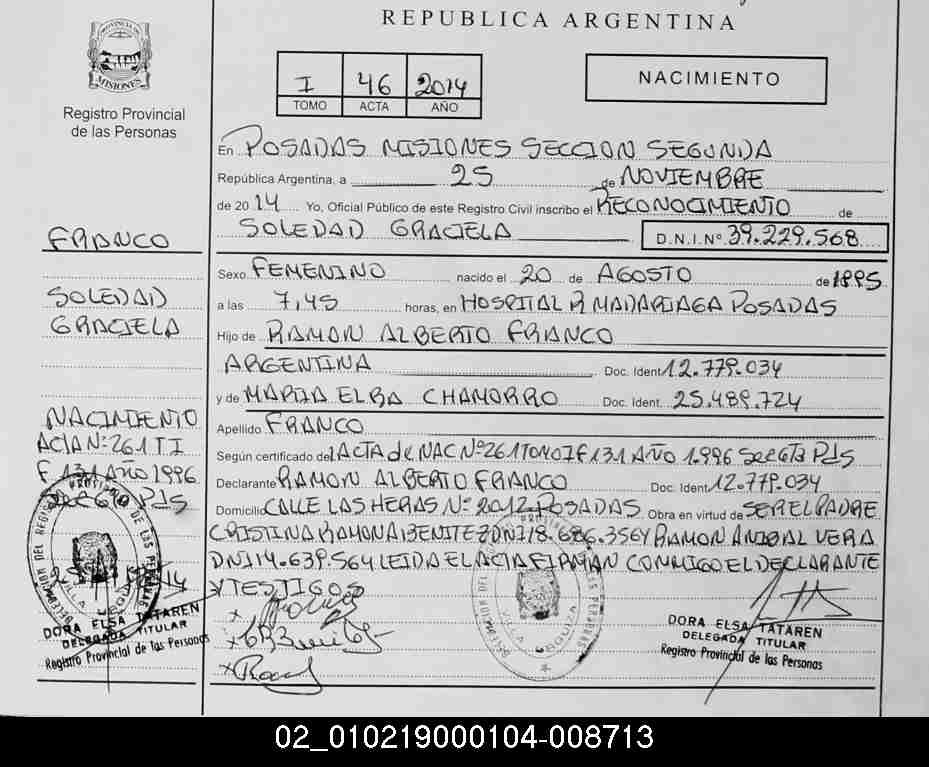 REPUBLICA ARGENTINA
PROVINCIA DE
MISIONES
Registro Provincial
de las Personas
I 46 2014
TOMO ACTA AÑO
NACIMIENTO
En POSADAS MISIONES SECCION SEGUNDA
República Argentina, a 25 de NOVIEMBRE
de 2014 Yo, Oficial Público de este Registro Civil inscribo el RECONOCIMIENTO de
SOLEDAD GRACIELA D.N.I.Nº 39.229.568
Sexo FEMENINO nacido el 20 de AGOSTO de 1995
a las 7,45 horas, en HOSPITAL R MADARIAGA POSADAS
Hijo de RAMON ALBERTO FRANCO
ARGENTINA Doc. Ident 12.779.034
y de MARIA ELBA CHAMORRO Doc. Ident. 25.489.724
Apellido FRANCO
Según certificado de ACTA de NAC Nº 261 TOMO I F 131 AÑO 1.996 Sec 6ta Pds
Declarante RAMON ALBERTO FRANCO Doc. Ident 12.779.034
Domicilio CALLE LAS HERAS Nº 2012 POSADAS Obra en virtud de SER EL PADRE
CRISTINA RAMONA BENITEZ DNI 18.686.356 Y RAMON ANIBAL VERA
DNI 14.639.564 LEIDA EL ACTA FIRMAN CONMIGO EL DECLARANTE
Y TESTIGOS
FRANCO
SOLEDAD
GRACIELA
NACIMIENTO
ACTA Nº 261 T I
F 131 AÑO 1996
Sec 6ta Pds
DORA ELSA TATAREN
DELEGADA TITULAR
Registro Provincial de las Personas
DORA ELSA TATAREN
DELEGADA TITULAR
Registro Provincial de las Personas
02_010219000104-008713